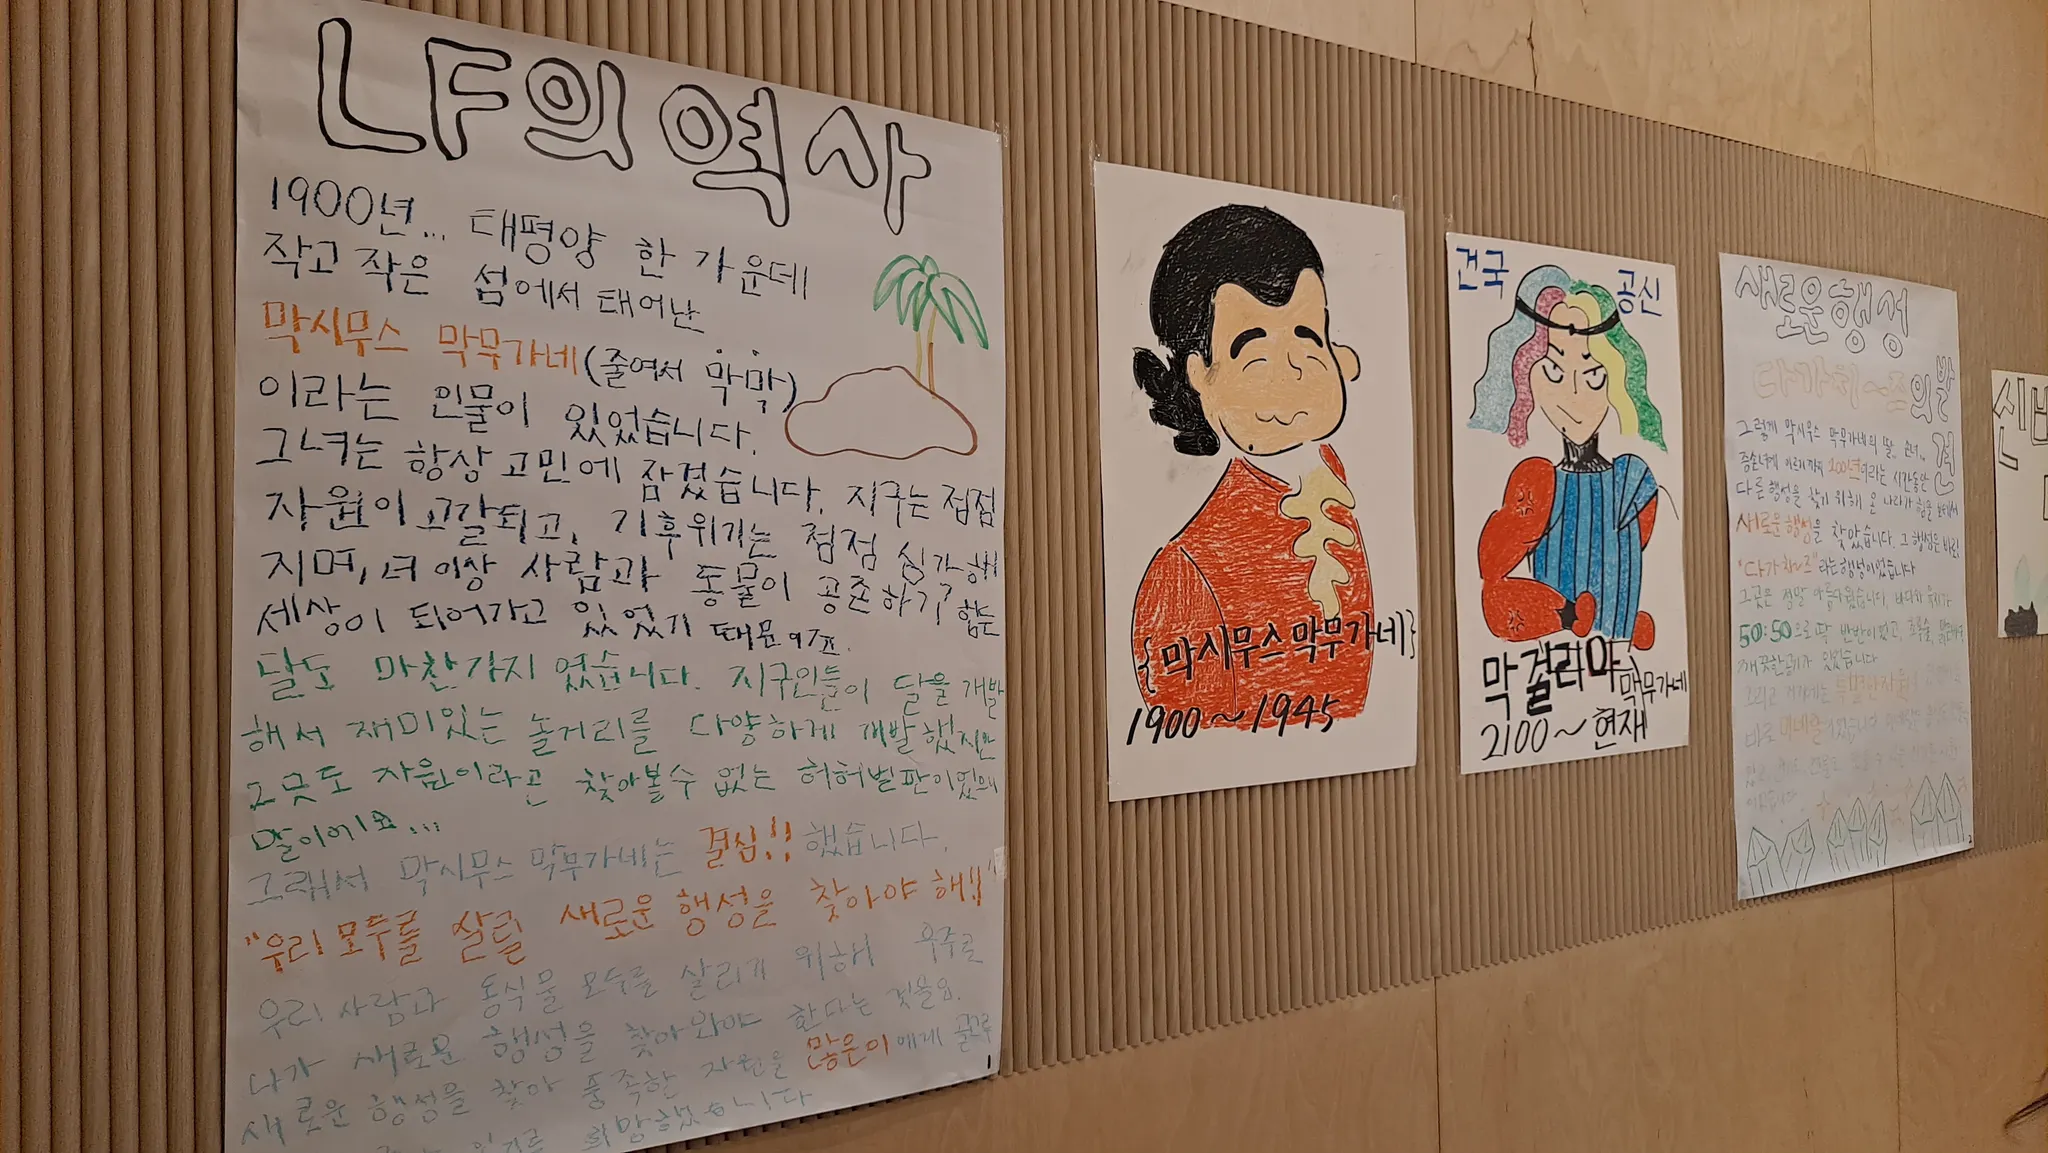 LF의 역사
1900년... 태평양 한 가운데
작고 작은 섬에서 태어난
막시무스 막무가네(줄여서 막막)
이라는 인물이 있었습니다.
그녀는 항상 고민에 잠겼습니다. 지구는 점점
자원이 고갈되고, 기후위기는 점점 심각해
지며, 더 이상 사람과 동물이 공존하기 힘든
세상이 되어가고 있었기 때문이죠.
달도 마찬가지였습니다. 지구인들이 달을 개발
해서 재미있는 놀거리를 다양하게 개발했지만
그곳도 자원이라곤 찾아볼 수 없는 허허벌판이었으니
말이에요...
그래서 막시무스 막무가네는 결심!! 했습니다.
"우리 모두를 살릴 새로운 행성을 찾아야 해!!"
우리 사람과 동식물 모두를 살리기 위해 우주로
나가 새로운 행성을 찾아와야 한다는 것을요.
새로운 행성을 찾아 풍족한 자원을 많은이에게 골고루
희망했습니다
1
{막시무스 막무가네}
1900~1945
건국 공신
막걸리아 막무가네
2100~현재
새로운 행성
의 발견
그렇게 막시무스 막무가네의 딸, 손녀,
증손녀에 이르기까지 200년이라는 시간동안
다른 행성을 찾기 위해 온 나라가 힘을 보태서
새로운 행성을 찾았습니다. 그 행성은 바로!
라는 행성이었습니다
그곳은 정말 아름다웠습니다. 바다와 육지가
50:50으로 딱 반반이었고, 초록숲, 맑은
깨끗한 공기가 있었습니다
그리고 거기에는 특별한 자원이
바로 미네랄
2